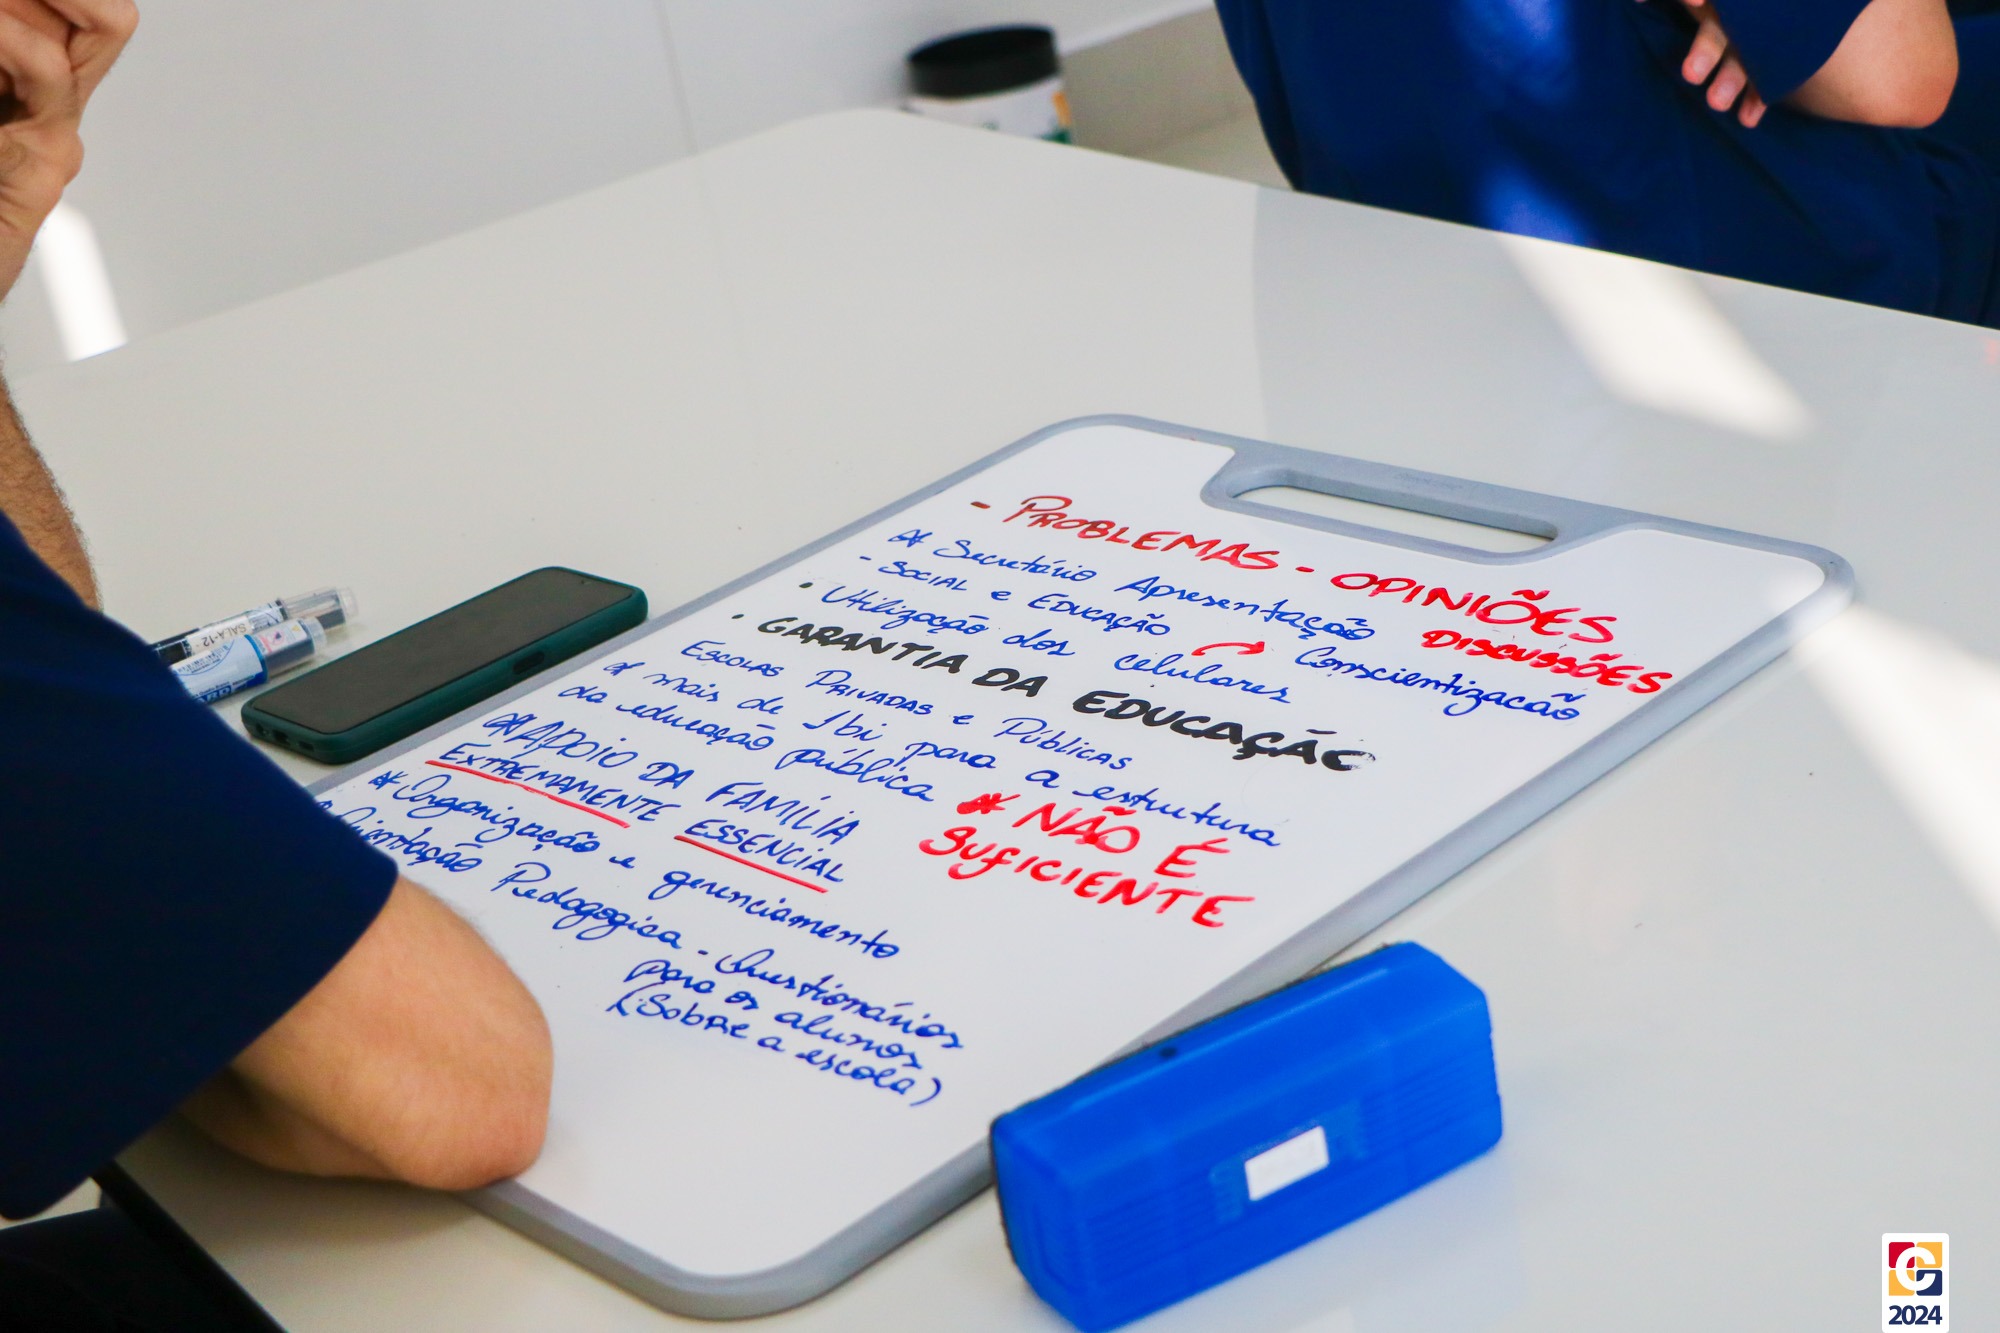 - PROBLEMAS - OPINIÕES
* Secretário Apresentação DISCUSSÕES
- SOCIAL e EDUCAÇÃO Conscientização
• Utilização dos celulares
• GARANTIA DA EDUCAÇÃO
ESCOLAS PRIVADAS e PÚBLICAS
* mais de 1bi para a estrutura
da educação pública * NÃO É
SUFICIENTE
* APOIO DA FAMÍLIA
EXTREMAMENTE ESSENCIAL
* Organização e gerenciamento
Pedagogica - Questionários
para os alunos
(Sobre a escola)
SALA-12
2024